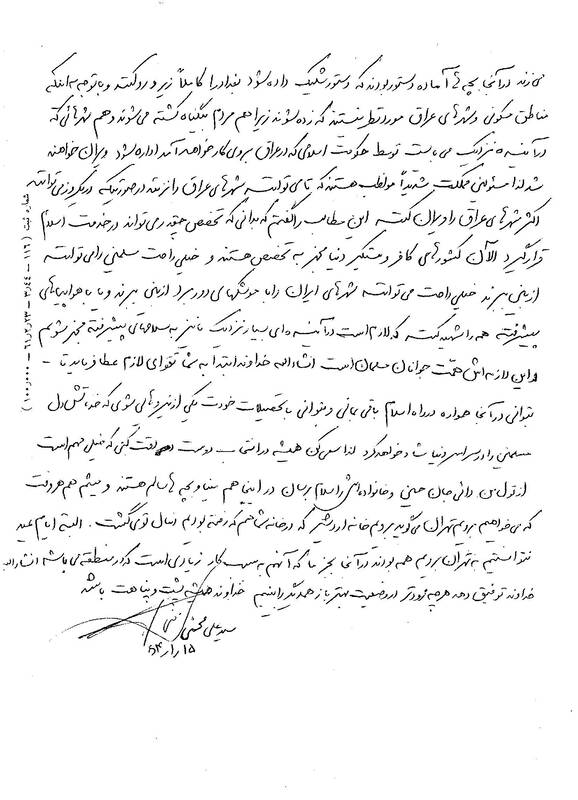 می زند در آنجا بچه ها آماده دستور بودند که دستور شلیک داده شود بغداد را کاملاً زیر و رو کنند و با توجه به اینکه
مناطق مسکونی و شهرهای عراق مورد نظر نیستند که زده شوند زیرا هم مردم بیگناه کشته می شوند و هم شهرهائی که
در آینده نزدیک می بایست توسط حکومت اسلامی که در عراق بروی کار خواهد آمد اداره شود ویران خواهند
شد لذا مسئولین مملکت شدیداً مواظب هستند که تا می توانند شهرهای عراق را نزنند در صورتیکه در یکروز می توانند
اکثر شهرهای عراق را ویران کنند این مطالب را گفتم که بدانی که تخصص چقدر می تواند در خدمت اسلام
قرار گیرد الآن کشورهای کافر و ستمگر دنیا مجهز به تخصص هستند و خیلی راحت مسلمین را می توانند
از بین ببرند خیلی راحت می توانند شهرهای ایران را با موشکهای دور برد از بین ببرند و یا با هواپیماهای
پیشرفته همه را شهید کنند که لازم است در آینده ای بسیار نزدیک ما نیز به سلاحهای پیشرفته مجهز شویم
و این لازمه اش همت جوانان مسلمان است انشاءالله خداوند ابتدا به شما تقوای لازم عطا فرماید تا -
بتوانی در آنجا همواره در راه اسلام باقی بمانی و بتوانی با تحصیلات خودت یکی از نیروهائی بشوی که خداوند دل
مسلمین را در سراسر دنیا شاد خواهد کرد لذا سعی کن همیشه در انتخاب دوست دقت کنی که خیلی مهم است
از قول من دائی جان حسین و خانواده اش را سلام برسان در اینجا هم مینا و بچه ها سالم هستند و میثم هم هر وقت
که می خواهیم برویم تهران می گوید برویم خانه اردشیر که در خانه شما هم که رفته بودیم دنبال تو می گشت. البته ایام عید
نتوانستیم به تهران برویم همه بودند در آنجا بجز ما که آنهم به سبب کار زیادی است که در منطقه می باشد انشاءالله
خداوند توفیق دهد هر چه زودتر در وضعیت بهتر باز همدیگر را ببینیم خداوند همیشه پشت و پناهت باشد
سید علی مجتبی
۱۵ ر ۱ ر ۶۴
شماره ثبت (۱۱۶ – ۳٫۴۴ – ۶۱٫۲٫۲۳ – ۱۰۰٫۰۰۰)